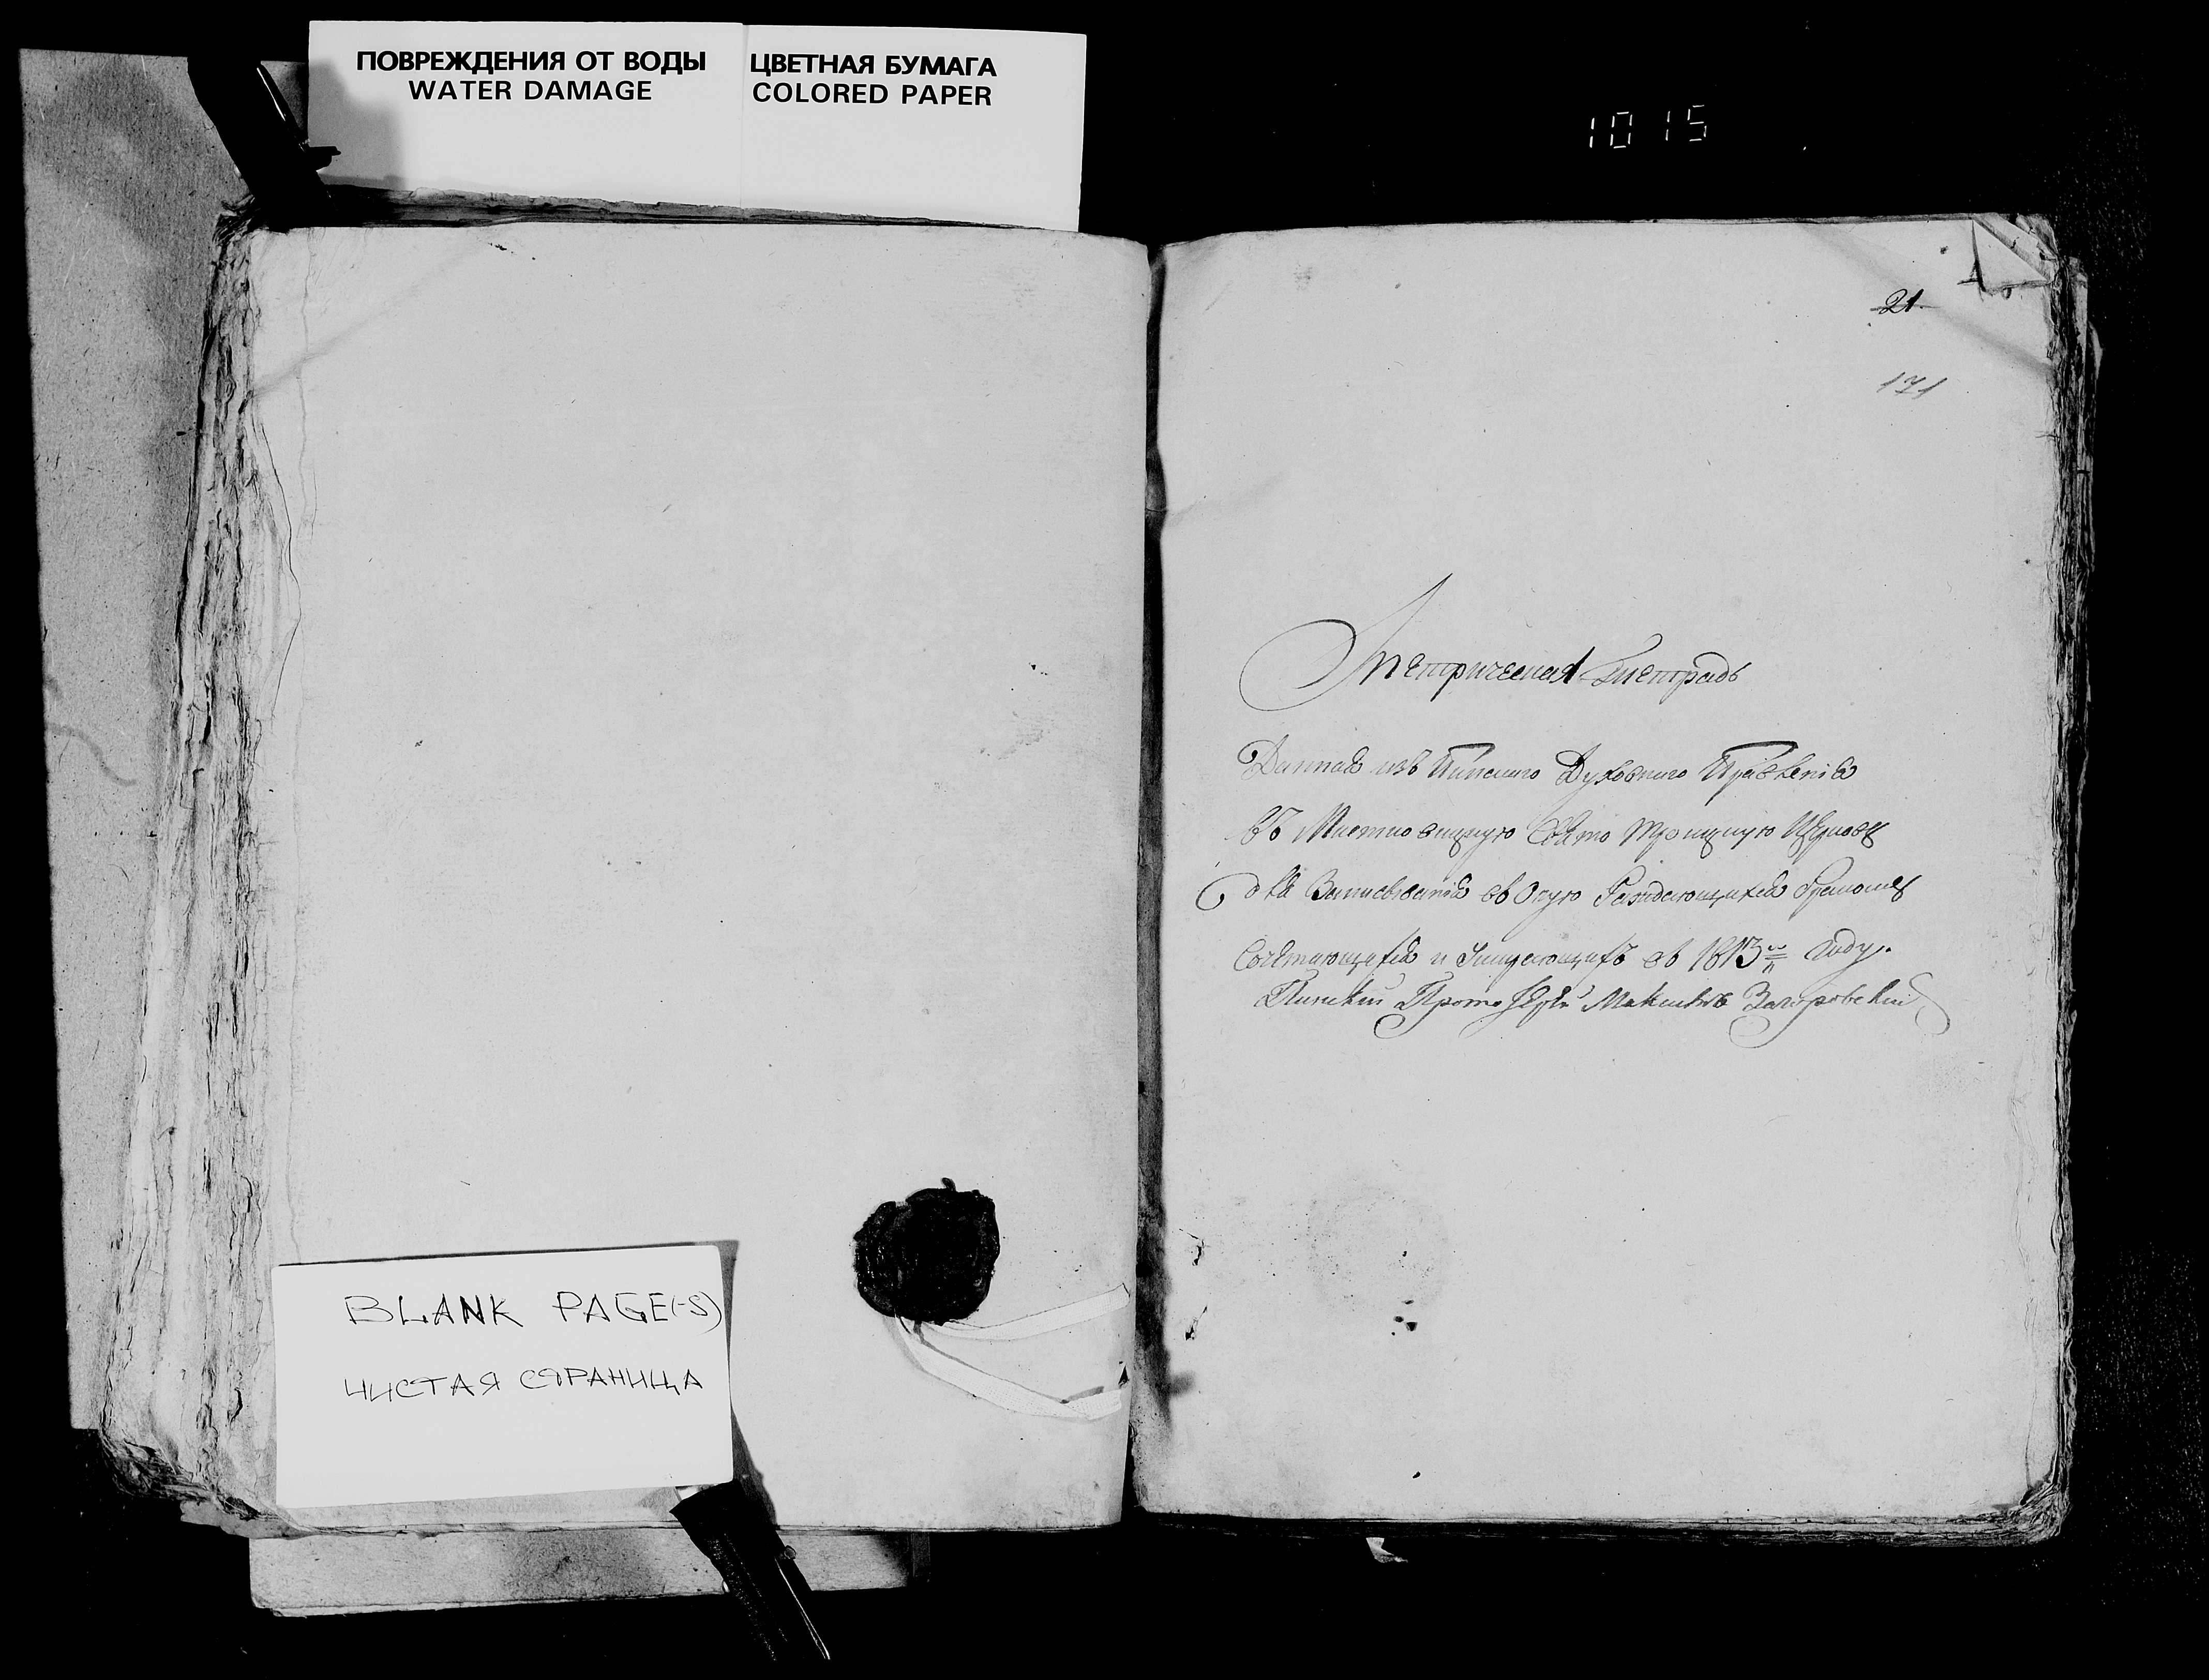 ПОВРЕЖДЕНИЯ ОТ ВОДЫ
WATER DAMAGE
ЦВЕТНАЯ БУМАГА
COLORED PAPER
1015
21.
171
Метрическая Тетрадь
Данная изъ Пинскаго Духовнаго Правленія
въ Свято Троицкую Церковь
для Записыванія въ Оную Раждающихся
Сочетающихся и Умирающихъ въ 1813 Году.
Пинскій Протоіерей Загоровскій
BLANK PAGE(-S)
ЧИСТАЯ СТРАНИЦА